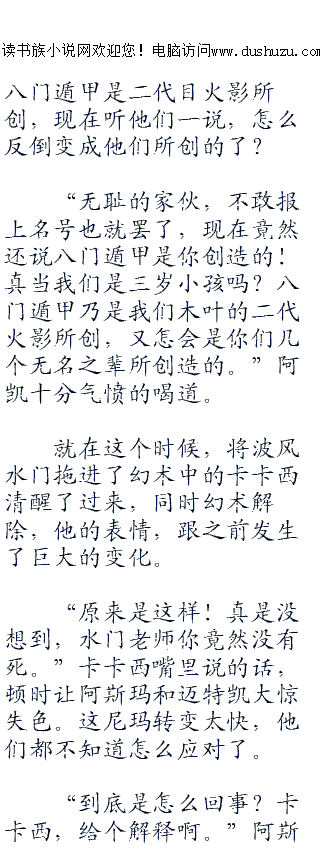 读书族小说网欢迎您！电脑访问www.dushuzu.com
八门遁甲是二代目火影所
创，现在听他们一说，怎么
反倒变成他们所创的了？
“无耻的家伙，不敢报
上名号也就罢了，现在竟然
还说八门遁甲是你创造的！
真当我们是三岁小孩吗？八
门遁甲乃是我们木叶的二代
火影所创，又怎会是你们几
个无名之辈所创造的。”阿
凯十分气愤的喝道。
就在这个时候，将波风
水门拖进了幻术中的卡卡西
清醒了过来，同时幻术解
除，他的表情，跟之前发生
了巨大的变化。
“原来是这样！真是没
想到，水门老师你竟然没有
死。”卡卡西嘴里说的话，
顿时让阿斯玛和迈特凯大惊
失色。这尼玛转变太快，他
们都不知道怎么应对了。
“到底是怎么回事？卡
卡西，给个解释啊。”阿斯